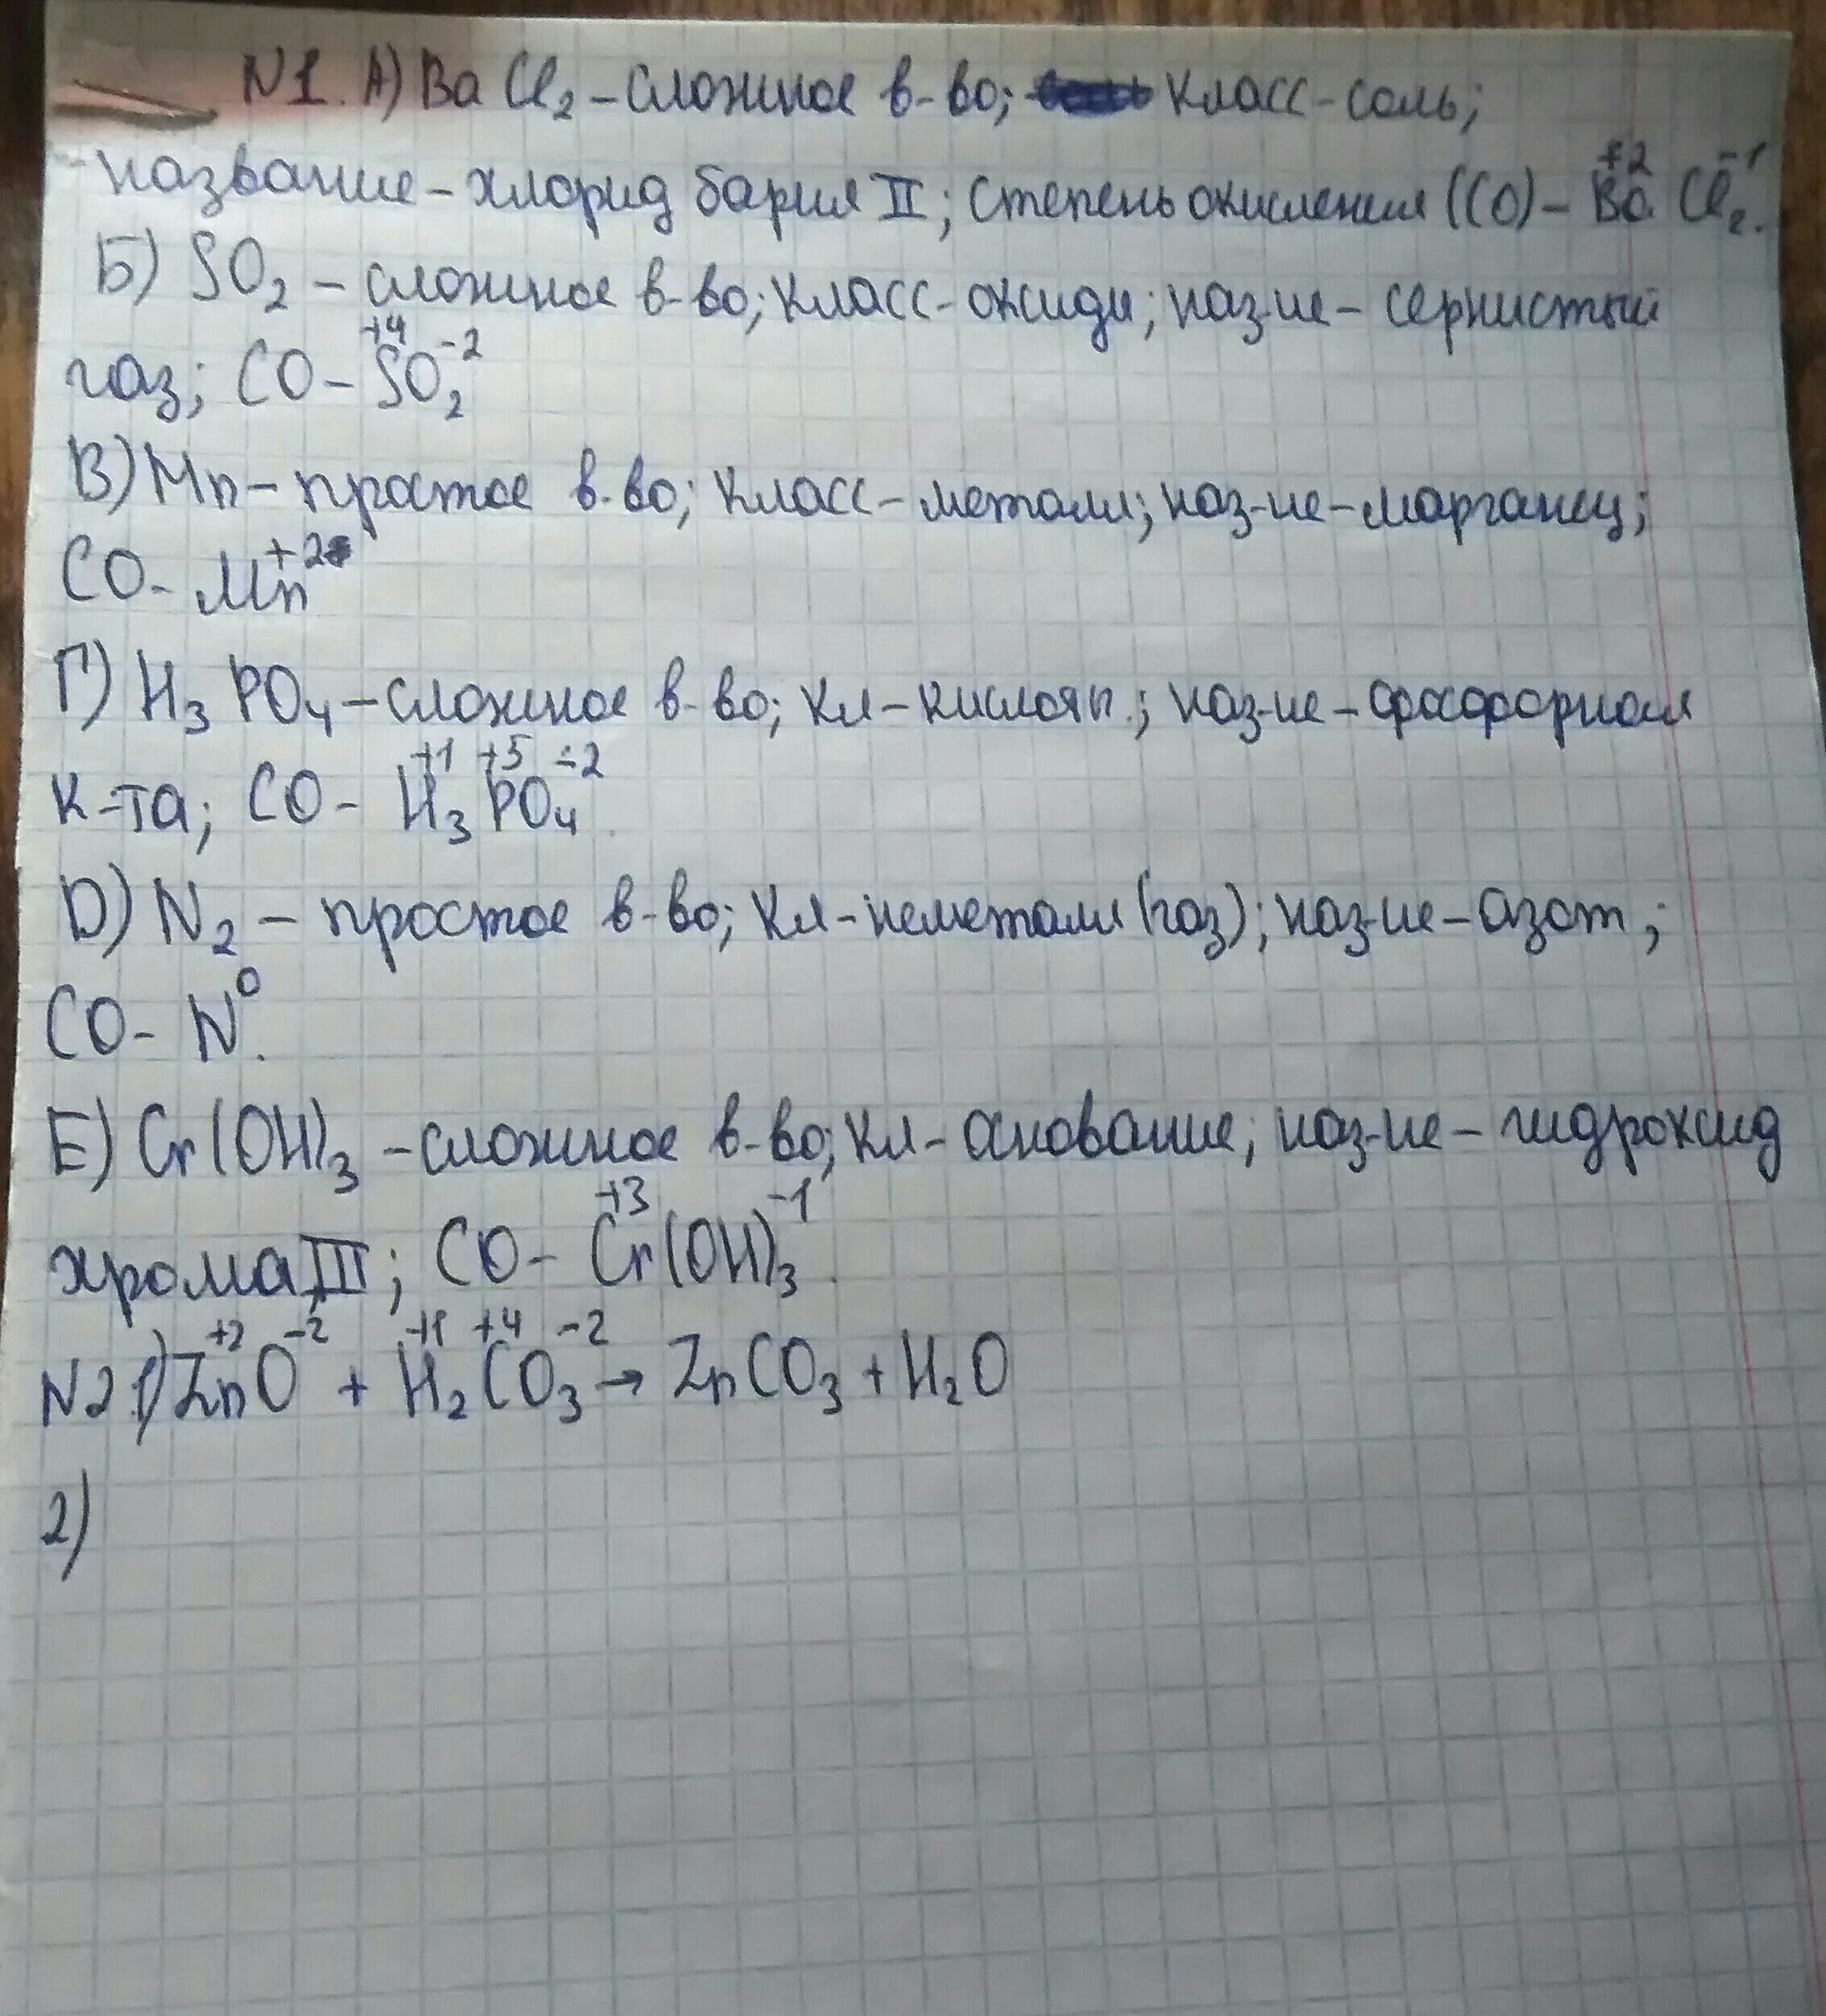 N1. А) BaCl₂ – сложное в-во; класс – соль;
название – хлорид бария II; степень окисления (СО) – Ba⁺² Cl₂⁻¹.
Б) SO₂ – сложное в-во; класс – оксиды; наз-ие – сернистый
газ; СО – S⁺⁴O₂⁻²
В) Mn – простое в-во; класс – металл; наз-ие – марганец;
СО – Mn⁺²
Г) H₃PO₄ – сложное в-во; кл – кислоты; наз-ие – фосфорная
к-та; СО – H₃⁺¹P⁺⁵O₄⁻²
D) N₂ – простое в-во; кл – неметалл (газ); наз-ие – азот;
СО – N⁰.
Е) Cr(OH)₃ – сложное в-во; кл – основание; наз-ие – гидроксид
хрома III; СО – Cr⁺³(OH)₃⁻¹.
N2 1) Zn⁺²O⁻² + H₂⁺¹C⁺⁴O₃⁻² → ZnCO₃ + H₂O
2)